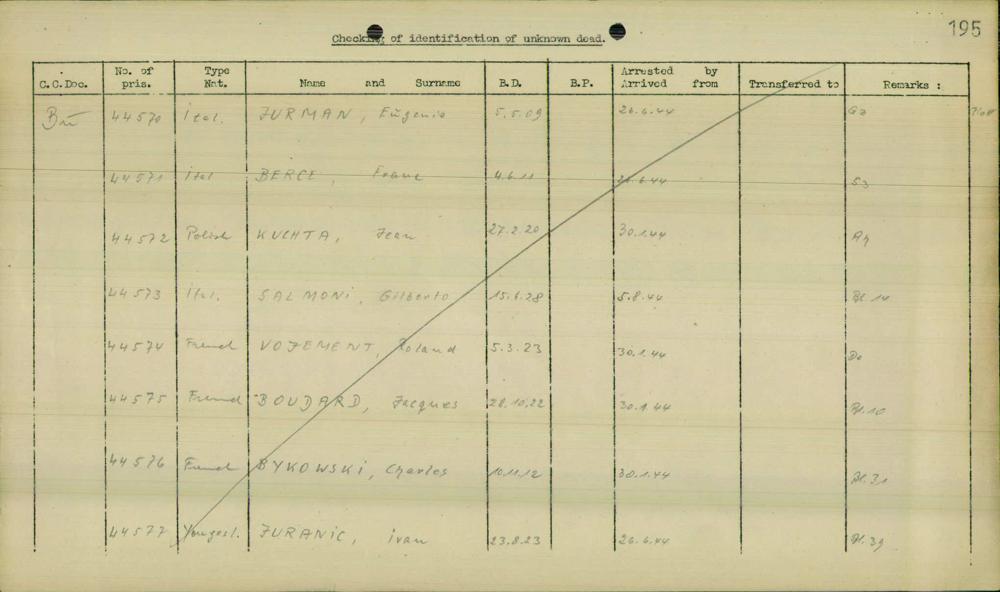 195
Checking of identification of unknown dead.
C.C.Doc. No. of pris. Type Nat. Name and Surname B.D. B.P. Arrested by Arrived from Transferred to Remarks :
Bu 44570 Ital. JURMAN, Eugenio 5.5.09 26.6.44
44571 Ital BERCE, Franc 4.6.11 26.6.44 53
44572 Polish KUCHTA, Jean 27.2.20 30.1.44
44573 Ital. SALMONI, Gilberto 15.6.28 5.8.44 Bl. 14
44574 French VOJEMENT, Roland 5.3.23 30.1.44 Do
44575 French BOUDARD, Jacques 28.10.22 30.1.44 Bl. 10
44576 French BYKOWSKI, Charles 10.11.12 30.1.44 Bl. 31
44577 Yougosl. JURANIC, ivan 23.8.23 26.6.44 Bl. 39